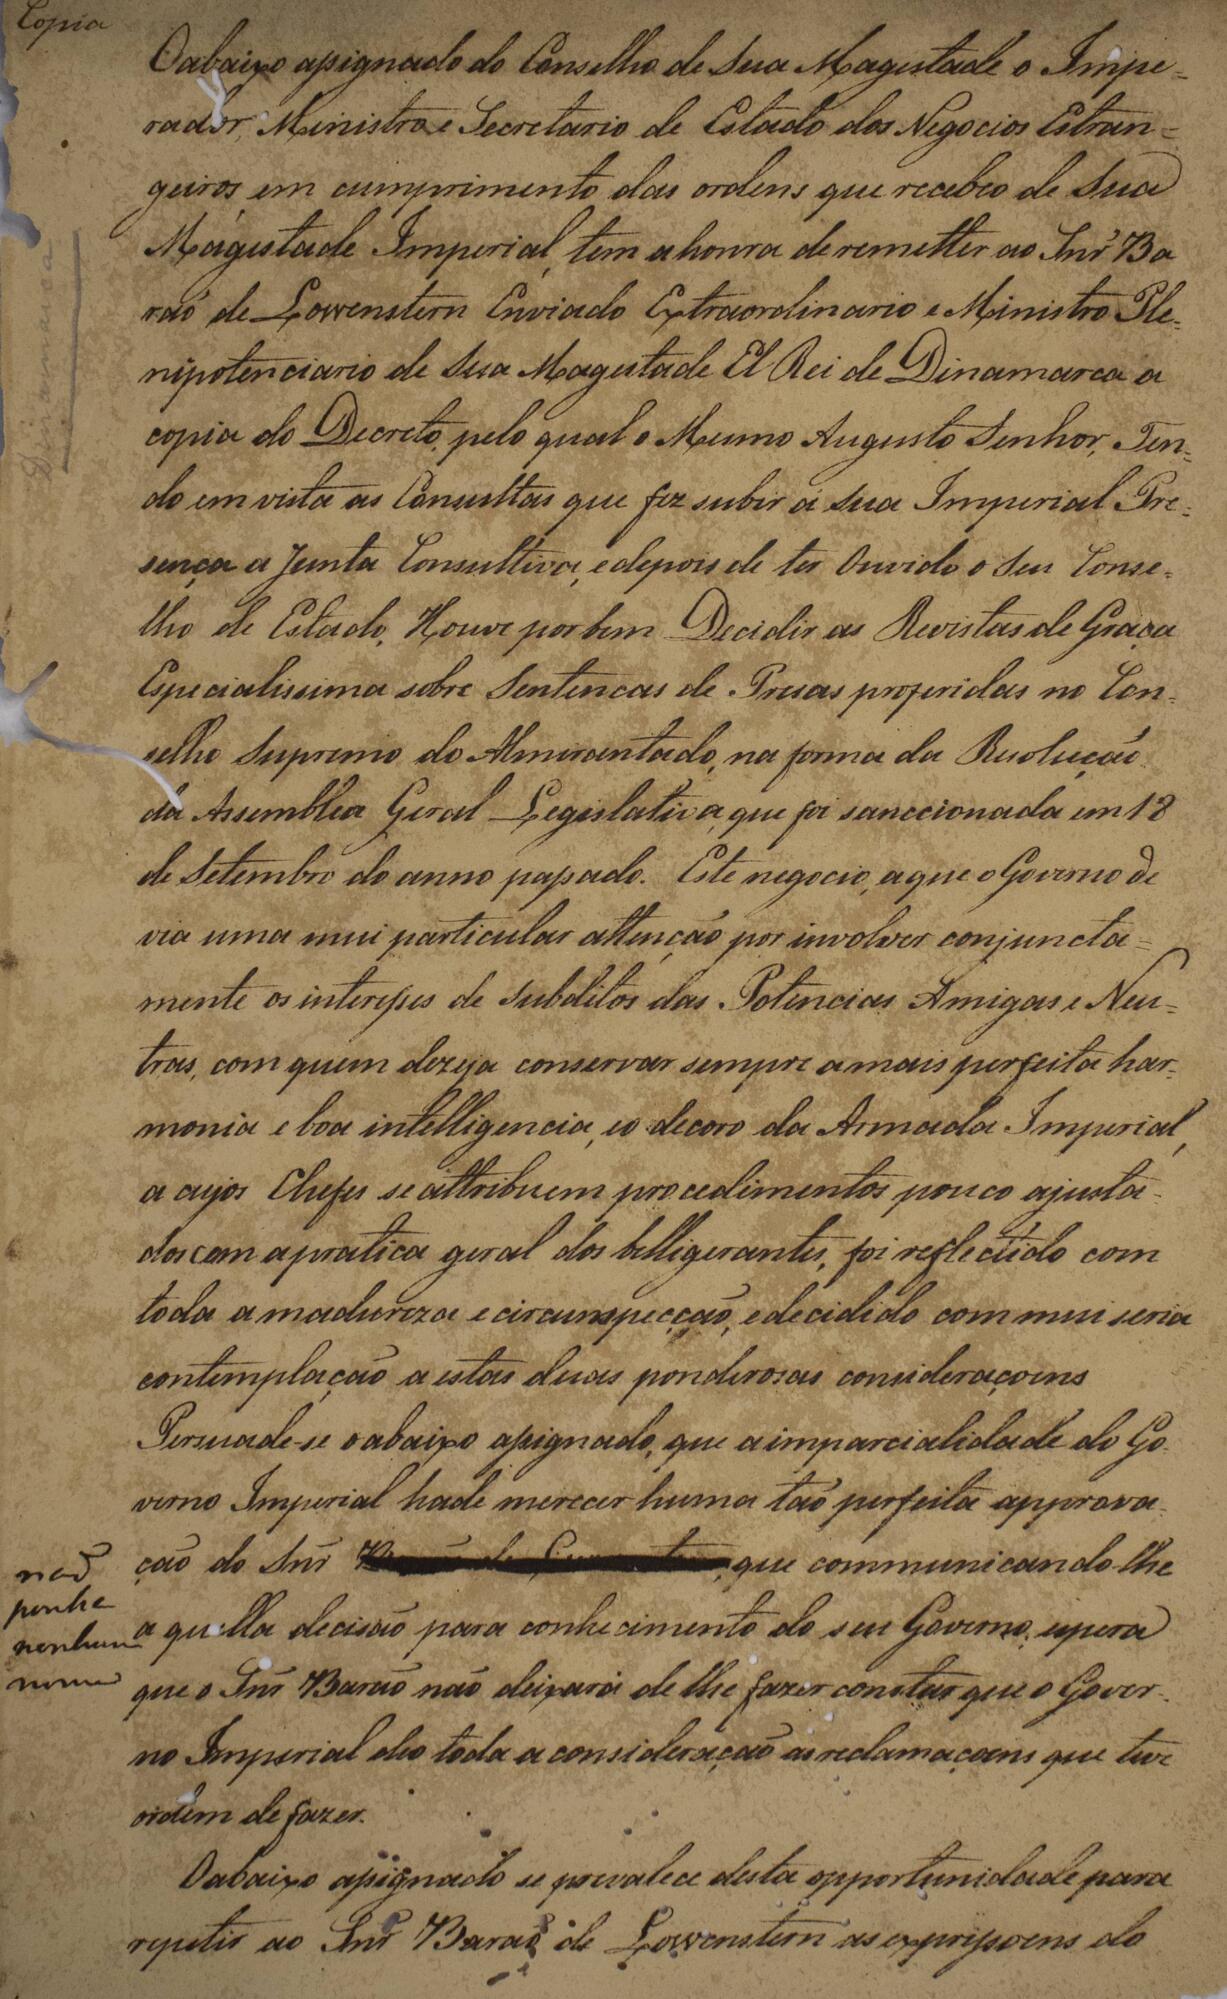 Copia
O abaixo assignado do Conselho de Sua Magestade o Impe-
rador, Ministro e Secretario de Estado dos Negocios Estran-
geiros em cumprimento das ordens que recebeo de Sua
Magestade Imperial, tem a honra de remetter ao Snr Ba
rão de Lowenstern Enviado Extraordinario e Ministro Ple-
nipotenciario de Sua Magestade El Rei de Dinamarca a
copia do Decreto, pelo qual o Mesmo Augusto Senhor, Ten-
do em vista as Consultas que fez subir á sua Imperial Pre-
sença a Junta Consultiva, e depois de ter Ouvido o Seu Conse-
lho de Estado, Houve por bem Decidir as Revistas de Graça
Especialissima sobre Sentencas de Presas proferidas no Con-
selho Supremo do Almirantado, na forma da Resolução
da Assemblea Geral Legislativa, que foi sanccionada em 18
de Setembro do anno passado. Este negocio, a que o Governo de
via uma mui particular attenção por involver conjuncta-
mente os interesses de subditos das Potencias Amigas e Neu-
tras, com quem dezeja conservar sempre a mais perfeita har-
monia e boa intelligencia, e o decoro da Armada Imperial,
a cujos Chefes se attribuem procedimentos pouco ajusta-
dos com a pratica geral dos belligerantes, foi reflectido com
toda a madureza e circunspecção, e decidido com mui seria
contemplação a estas duas ponderosas consideraçoens
Persuade-se o abaixo assignado, que a imparcialidade do Go-
verno Imperial hade merecer huma tão perfeita approva-
ção do Snr Barão de Lowenstern, que communicando-lhe
a quella decisão para conhecimento do seu Governo, espera
que o Snr Barão não deixará de lhe fazer constar que o Gover-
no Imperial deo toda a consideração as reclamaçoens que teve
ordem de fazer.
O abaixo assignado se prevalece desta opportunidade para
repetir ao Snr Barão de Lowenstern as expressoens do
Dinamarca
não
ponha
nenhum
nome